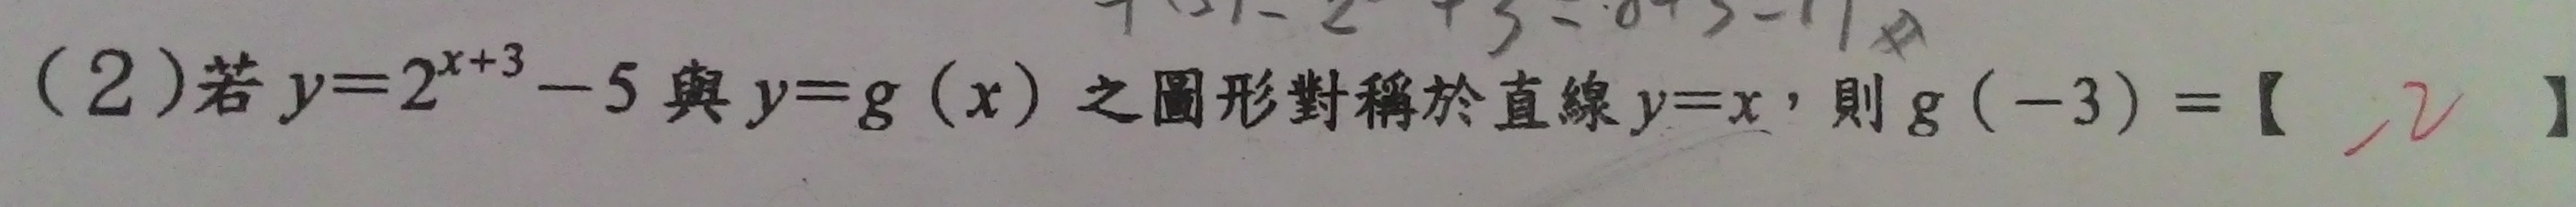 (2)若 y=2^{x+3}-5 與 y=g(x) 之圖形對稱於直線 y=x，則 g(-3)=【 -2 】